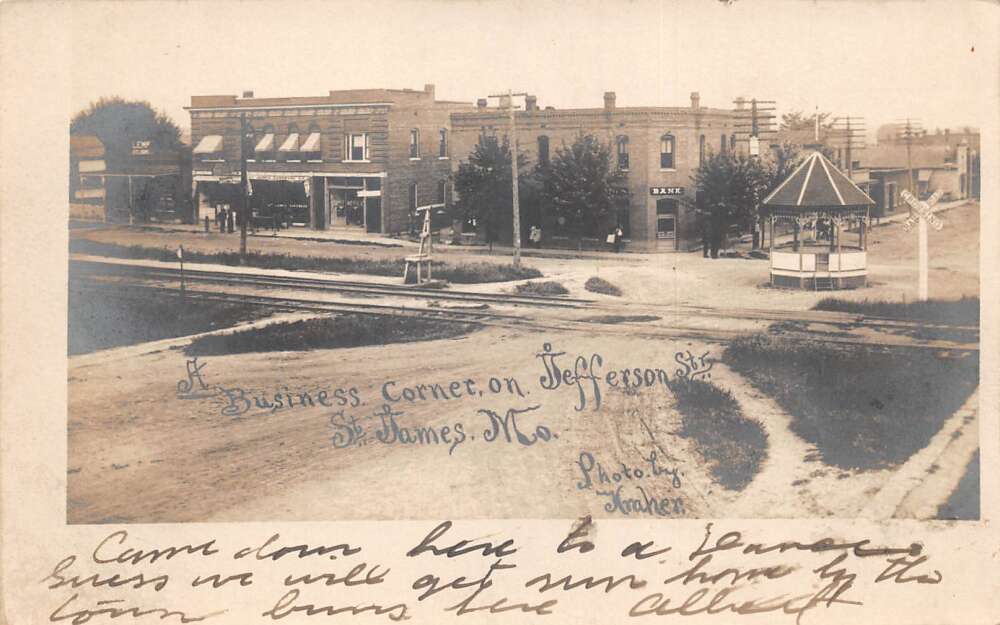 LEMP
BANK
A Business. Corner, on Jefferson Str.
St. James. Mo.
Photo. by.
Kraher.
Came down here to a Dance
Guess we will get run home by the
town burrs here Albert